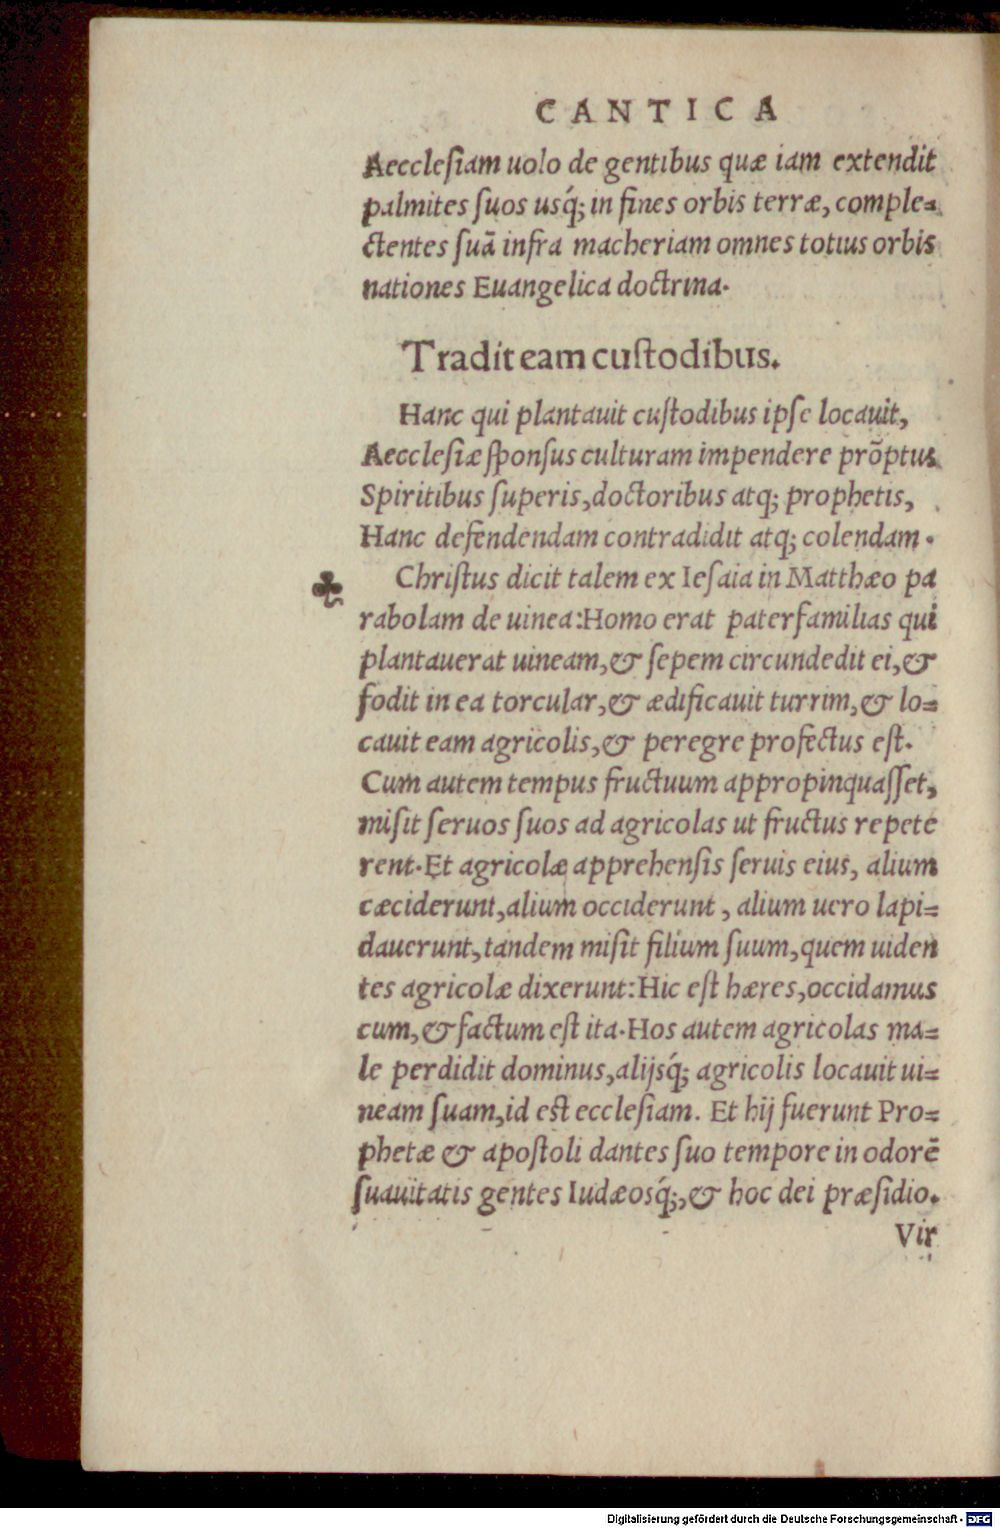 CANTICA
Aeccleſiam uolo de gentibus quæ iam extendit
palmites ſuos usq́; in fines orbis terræ, comple⸗
ctentes ſuā infra macheriam omnes totius orbis
nationes Euangelica doctrina.
Tradit eam cuſtodibus.
Hanc qui plantauit cuſtodibus ipſe locauit,
Aeccleſiæ ſponſus culturam impendere prõptus
Spiritibus ſuperis, doctoribus atq; prophetis,
Hanc defendendam contradidit atq; colendam.
☘ Chriſtus dicit talem ex Ieſaia in Matthæo pa
rabolam de uinea: Homo erat paterfamilias qui
plantauerat uineam, & ſepem circundedit ei, &
fodit in ea torcular, & ædificauit turrim, & lo⸗
cauit eam agricolis, & peregre profectus eſt.
Cum autem tempus fructuum appropinquaſſet,
miſit ſeruos ſuos ad agricolas ut fructus repete
rent. Et agricolæ apprehenſis ſeruis eius, alium
cæciderunt, alium occiderunt, alium uero lapi⸗
dauerunt, tandem miſit filium ſuum, quem uiden
tes agricolæ dixerunt: Hic eſt hæres, occidamus
cum, & factum eſt ita. Hos autem agricolas ma⸗
le perdidit dominus, alijsq́; agricolis locauit ui⸗
neam ſuam, id eſt eccleſiam. Et hij fuerunt Pro⸗
phetæ & apoſtoli dantes ſuo tempore in odorē
ſuauitatis gentes Iudæosq́;, & hoc dei præſidio.
Vir
Digitalisierung gefördert durch die Deutsche Forschungsgemeinschaft - DFG